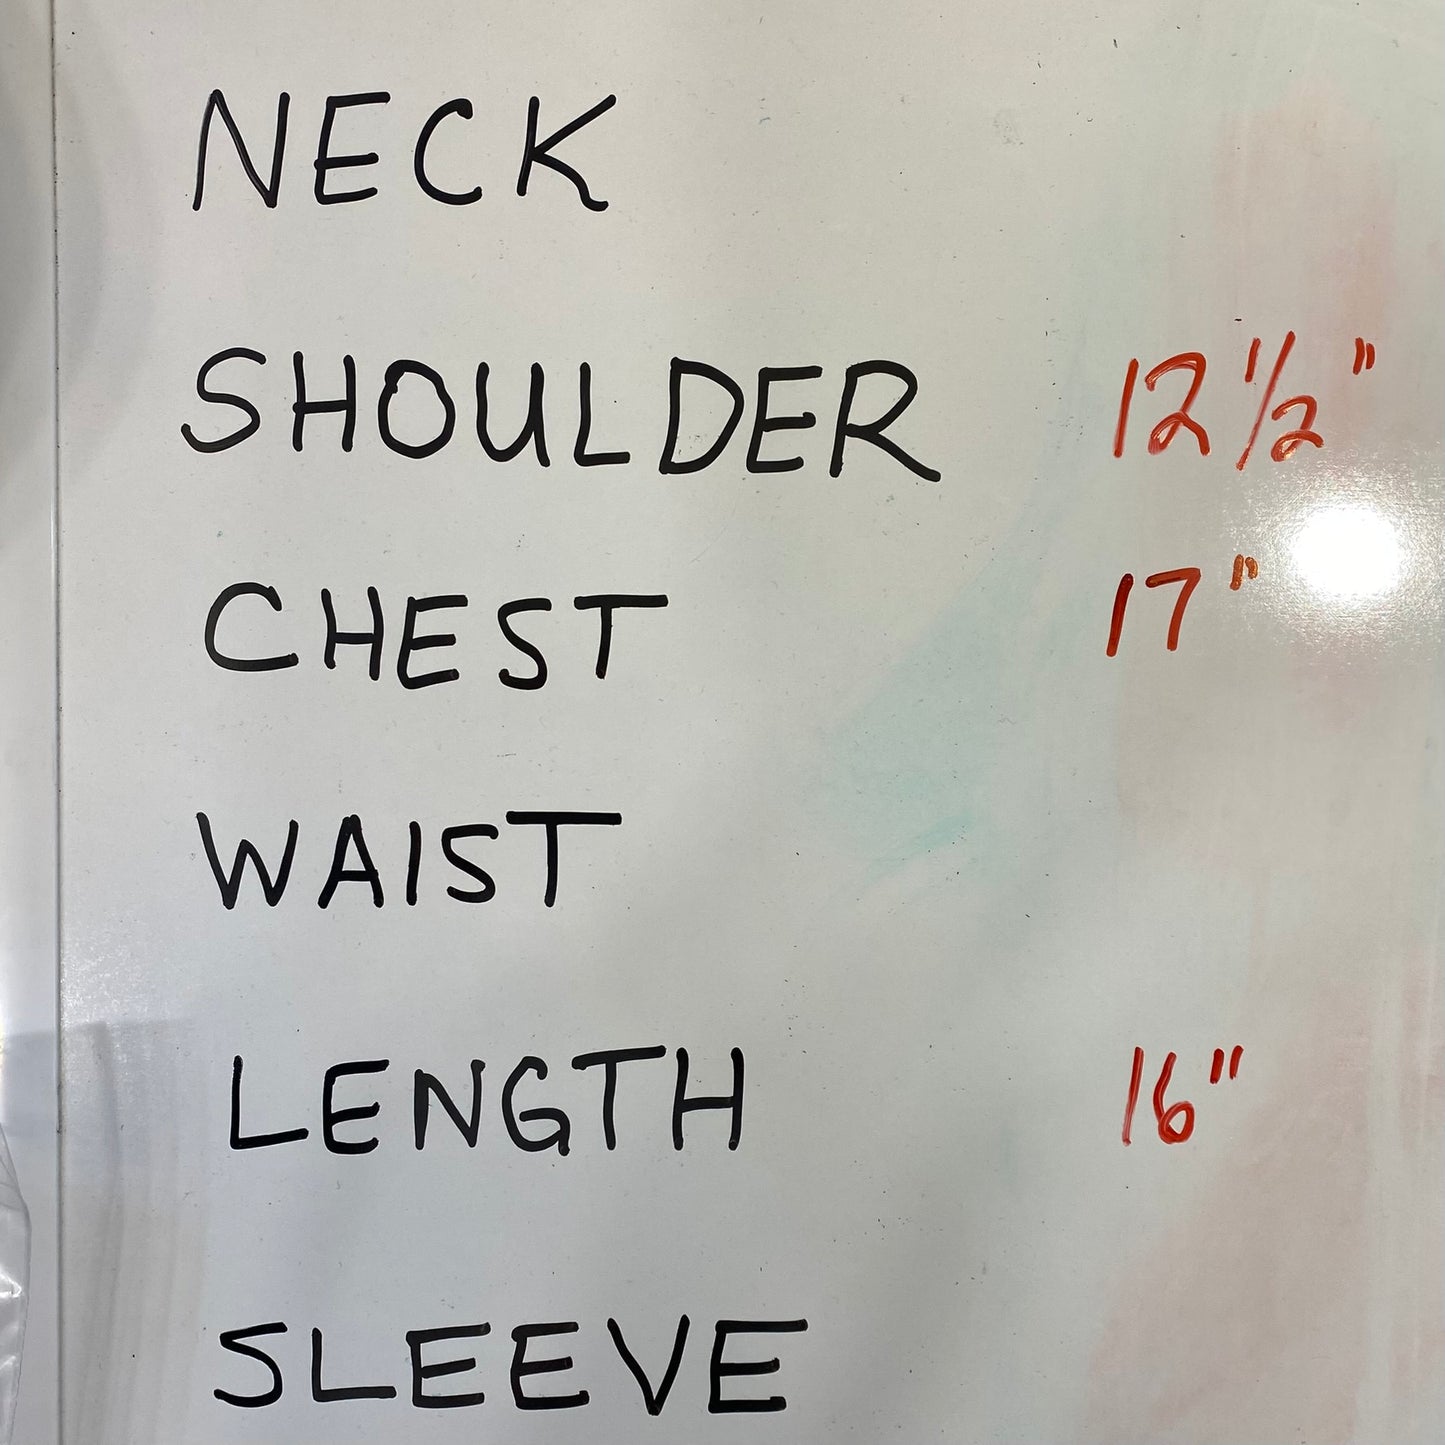 NECK
SHOULDER 12 1/2"
CHEST 17"
WAIST
LENGTH 16"
SLEEVE